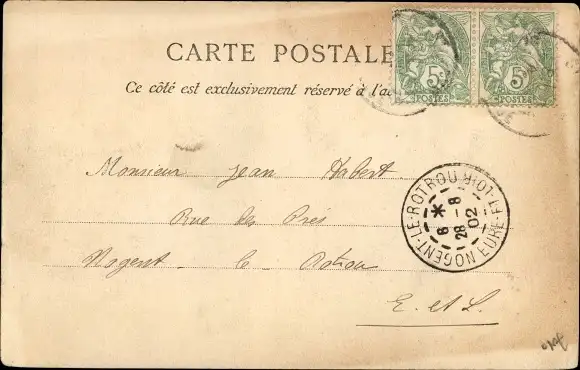 CARTE POSTALE
Ce côté est exclusivement réservé à l'a
5c 5c
POSTES POSTES
Monsieur Jean Habert
Rue des Prés
Nogent-le-Rotrou
E. et L.
NOGENT-LE-ROTROU EURE-ET-LOIR
6 *
28 - 8
02